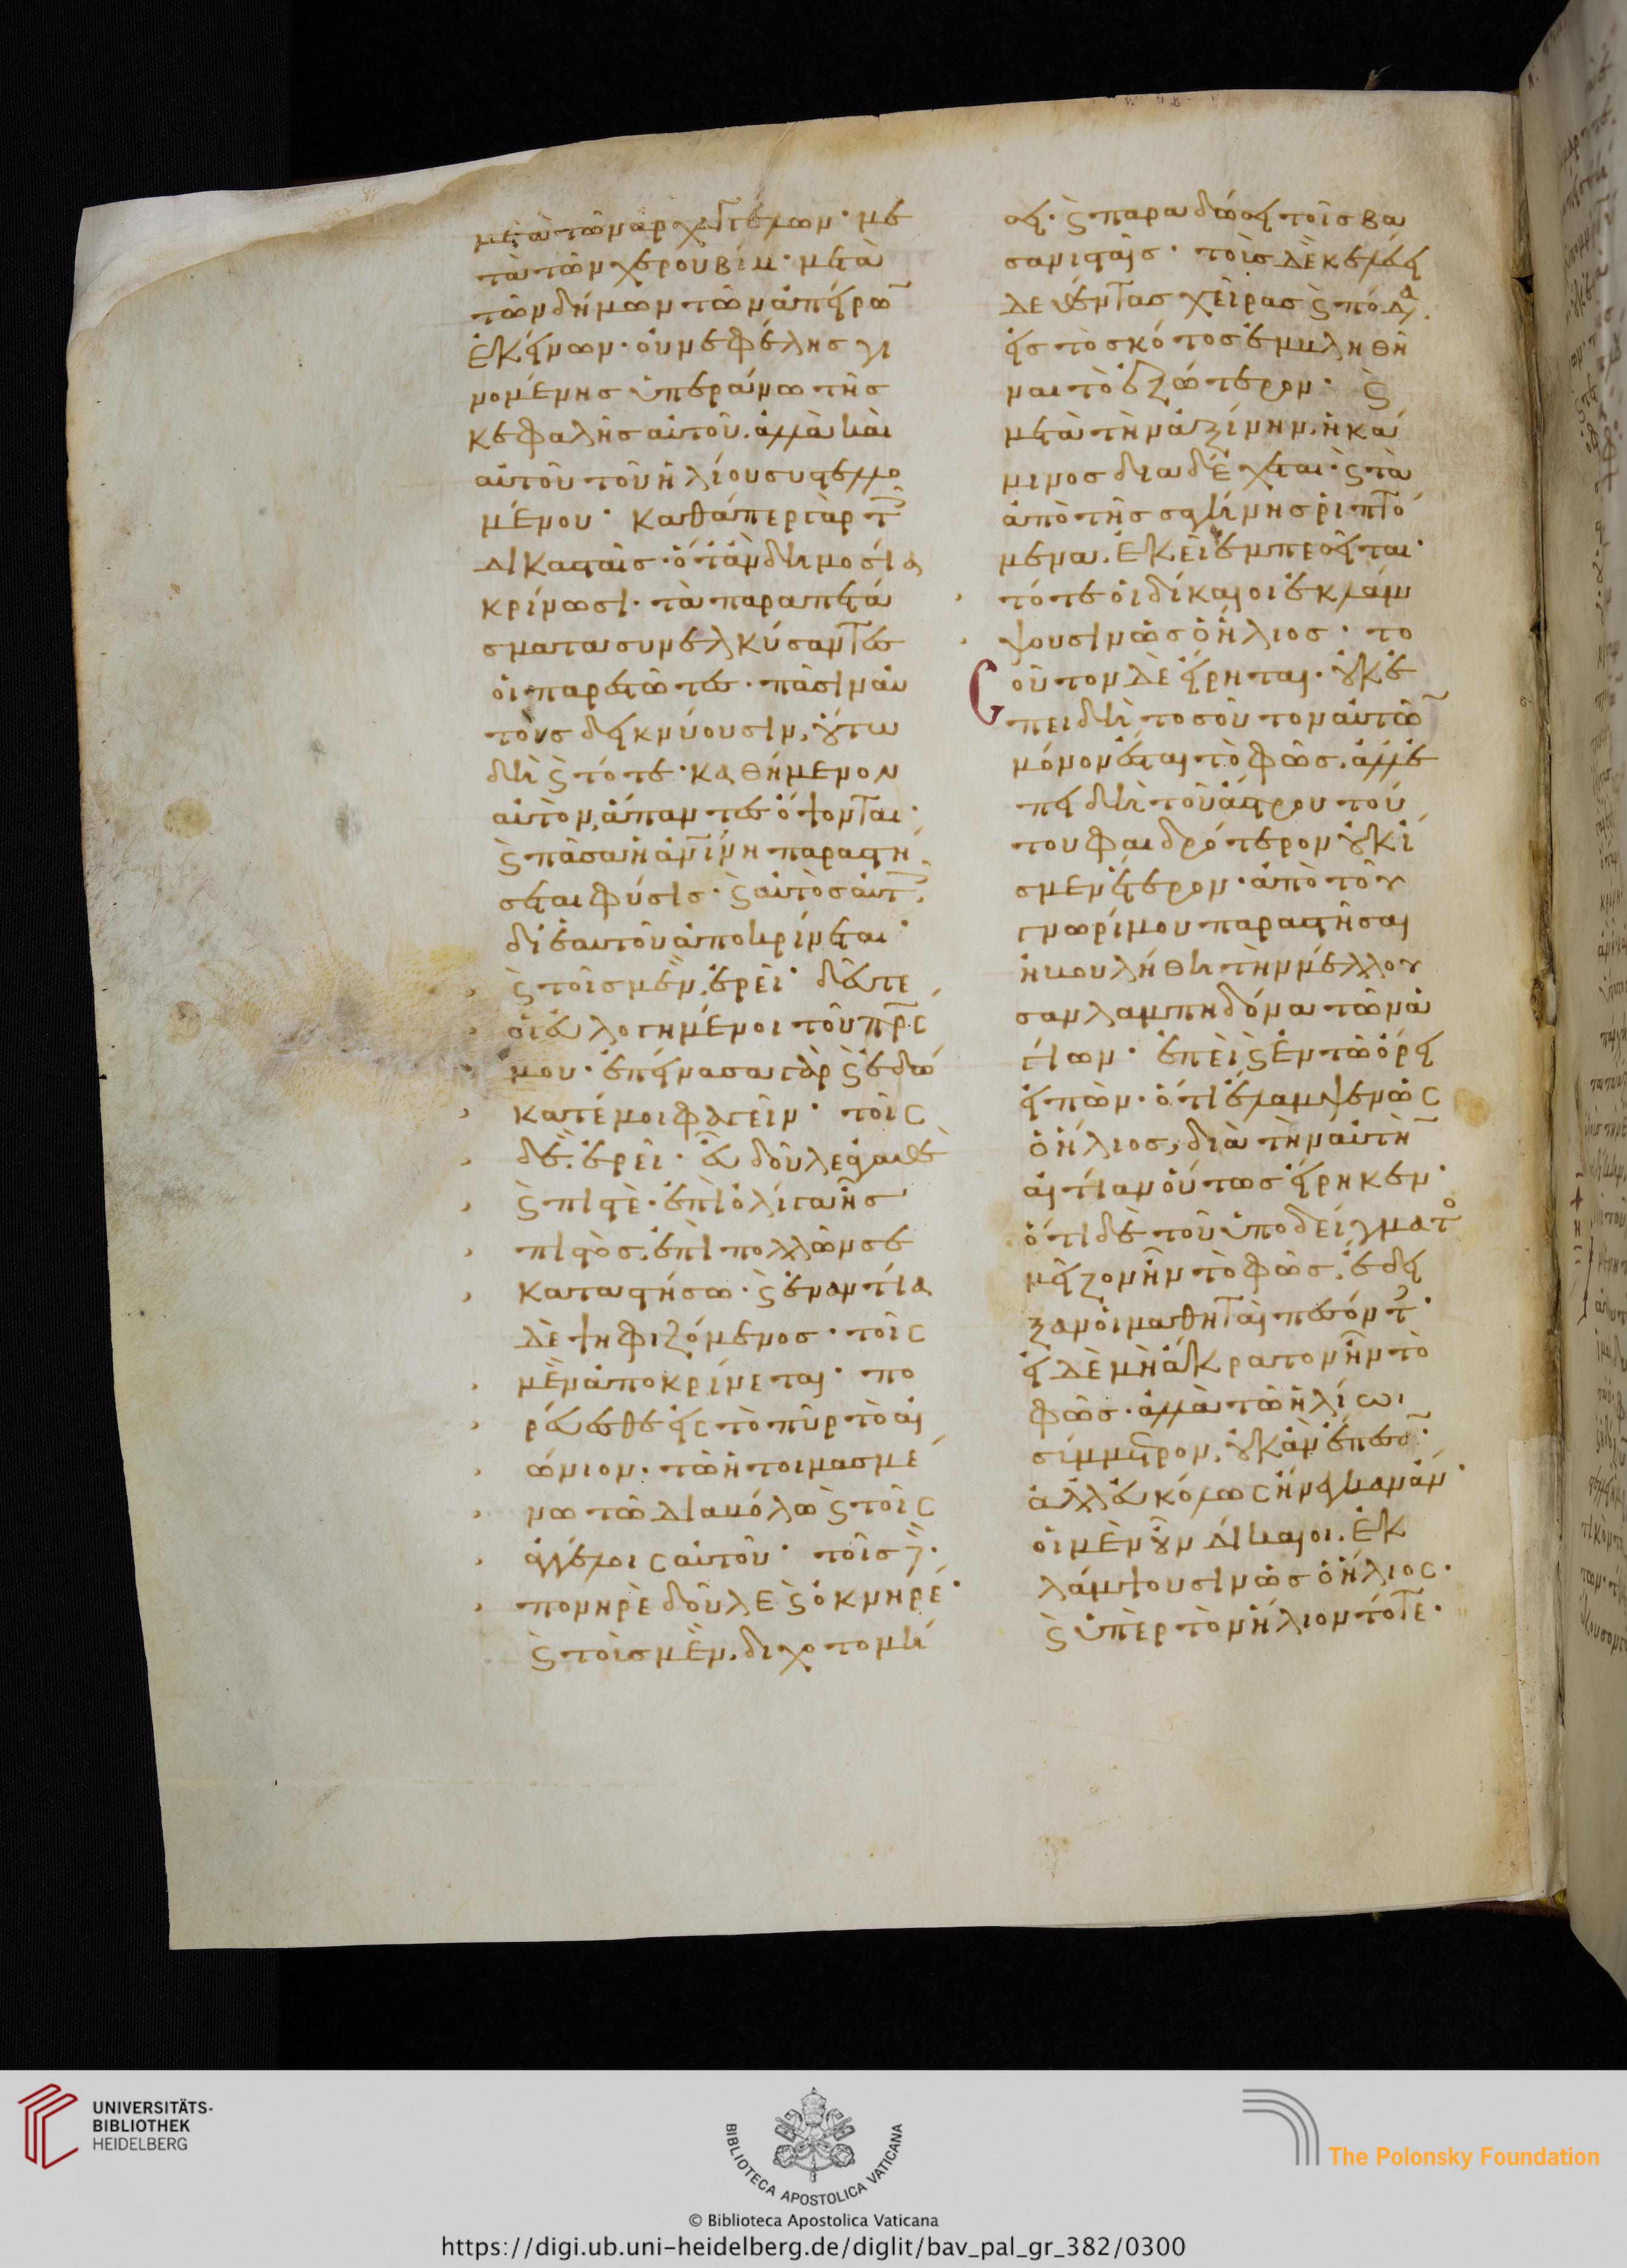 μετὰ τῶν ἀρχαγγέλων· με
τὰ τῶν χερουβίμ· μετὰ
τῶν δήμων τῶν ἀπείρω̅
ἐκείνων· οὐ νεφέλης γι
νομένης ὑπεράνω τῆς
κεφαλῆς αὐτοῦ. ἀλλὰ καὶ
αὐτοῦ τοῦ ἡλίου συστελλο
μένου· καθάπερ γὰρ τ
δικασταῖς· ὅταν δημοσίᾳ
κρίνωσι· τὰ παραπετά
σματα συνελκύσαντες
οἱ παρεστῶτες· πᾶσιν αὐ
τοὺς δεικνύουσιν, οὕτω
δὴ ϗ τότε· καθήμενον
αὐτὸν, ἅπαντες ὄψονται·
ϗ πᾶσα ἡ ἀν̅ίνη παραστή
σεται φύσις· ϗ αὐτὸς αὐτ
δι' ἑαυτοῦ ἀποκρίνεται·
ϗ τοῖς μὲν, ἐρεῖ· δεῦτε
οἱ εὐλογημένοι τοῦ πρ̅ς
μου· ἐπείνασα γὰρ ϗ ἐδώ
κατέ μοι φαγεῖν· τοῖς
δὲ, ἐρεῖ· εὖ δοῦλε ἀγαθὲ
ϗ πιστὲ· ἐπὶ ὀλίγα ἦς
πιστὸς, ἐπὶ πολλῶν σε
καταστήσω· ϗ ἐναντία
δὲ ψηφιζόμενος· τοῖς
μὲν ἀποκρίνεται· πο
ρεύεσθε εἰς τὸ πῦρ τὸ αἰ
ώνιον· τῶ ἡτοιμασμέ
νω τῶ διαβόλω ϗ τοῖς
ἀγγέλοις αὐτοῦ· τοῖς δ·
πονηρὲ δοῦλε ϗ ὀκνηρέ·
ϗ τοῖς μὲν, διχοτομή
σει· ϗ παραδώσει τοῖς βα
σανισταῖς· τοῖς δὲ κελεύει
δεθέντας χεῖρας ϗ πόδα
εἰς τὸ σκότος ἐμβληθῆ
ναι τὸ ἐξώτερον· ϗ
μετὰ τὴν ἀξίνην, ἡ κά
μινος διαδέχεται· ϗ τὰ
ἀπὸ τῆς σαγήνης ῥιπτό
μενα, ἐκεῖ ἐμπεσεῖται·
τότε οἱ δίκαιοι ἐκλάμ
ψουσιν ὡς ὁ ἥλιος· το
σοῦτον δὲ εἴρηται· οὐκ ἐ
πειδὴ τοσοῦτον αὐτῶ̅
μόνον ἔσται τὸ φῶς, ἀλλ' ἐ
πειδὴ τοῦ ἄστρου τού
του φαιδρότερον οὐκ ἴ
σμεν ἕτερον· ἀπὸ τοῦ
γνωρίμου παραστῆσαι
ἠβουλήθη τὴν μέλλου
σαν λαμπηδόνα τῶν ἁ
γίων· ἐπεὶ ϗ ἐν τῶ ὄρει
εἰπὼν· ὅτι ἔλαμψεν ὡς
ὁ ἥλιος, διὰ τὴν αὐτὴ̅
αἰτίαν οὕτως εἴρηκεν·
ὅτι δὲ τοῦ ὑποδείγματο
μεῖζον ἦν τὸ φῶς, ἔδει
ξαν οἱ μαθηταὶ πεσόντ·
εἰ δὲ μὴ ἄκρατον ἦν τὸ
φῶς· ἀλλὰ τῶ ἡλίωι
σύμμετρον, οὐκ ἂν ἔπεσο̅·
ἀλλ' εὐκόλως ἤνεγκαν ἄν·
οἱ μὲν οὖν δίκαιοι, ἐκ
λάμψουσιν ὡς ὁ ἥλιος·
ϗ ὑπὲρ τὸν ἥλιον τότε·
UNIVERSITÄTS-
BIBLIOTHEK
HEIDELBERG
BIBLIOTECA APOSTOLICA VATICANA
The Polonsky Foundation
© Biblioteca Apostolica Vaticana
https://digi.ub.uni-heidelberg.de/diglit/bav_pal_gr_382/0300